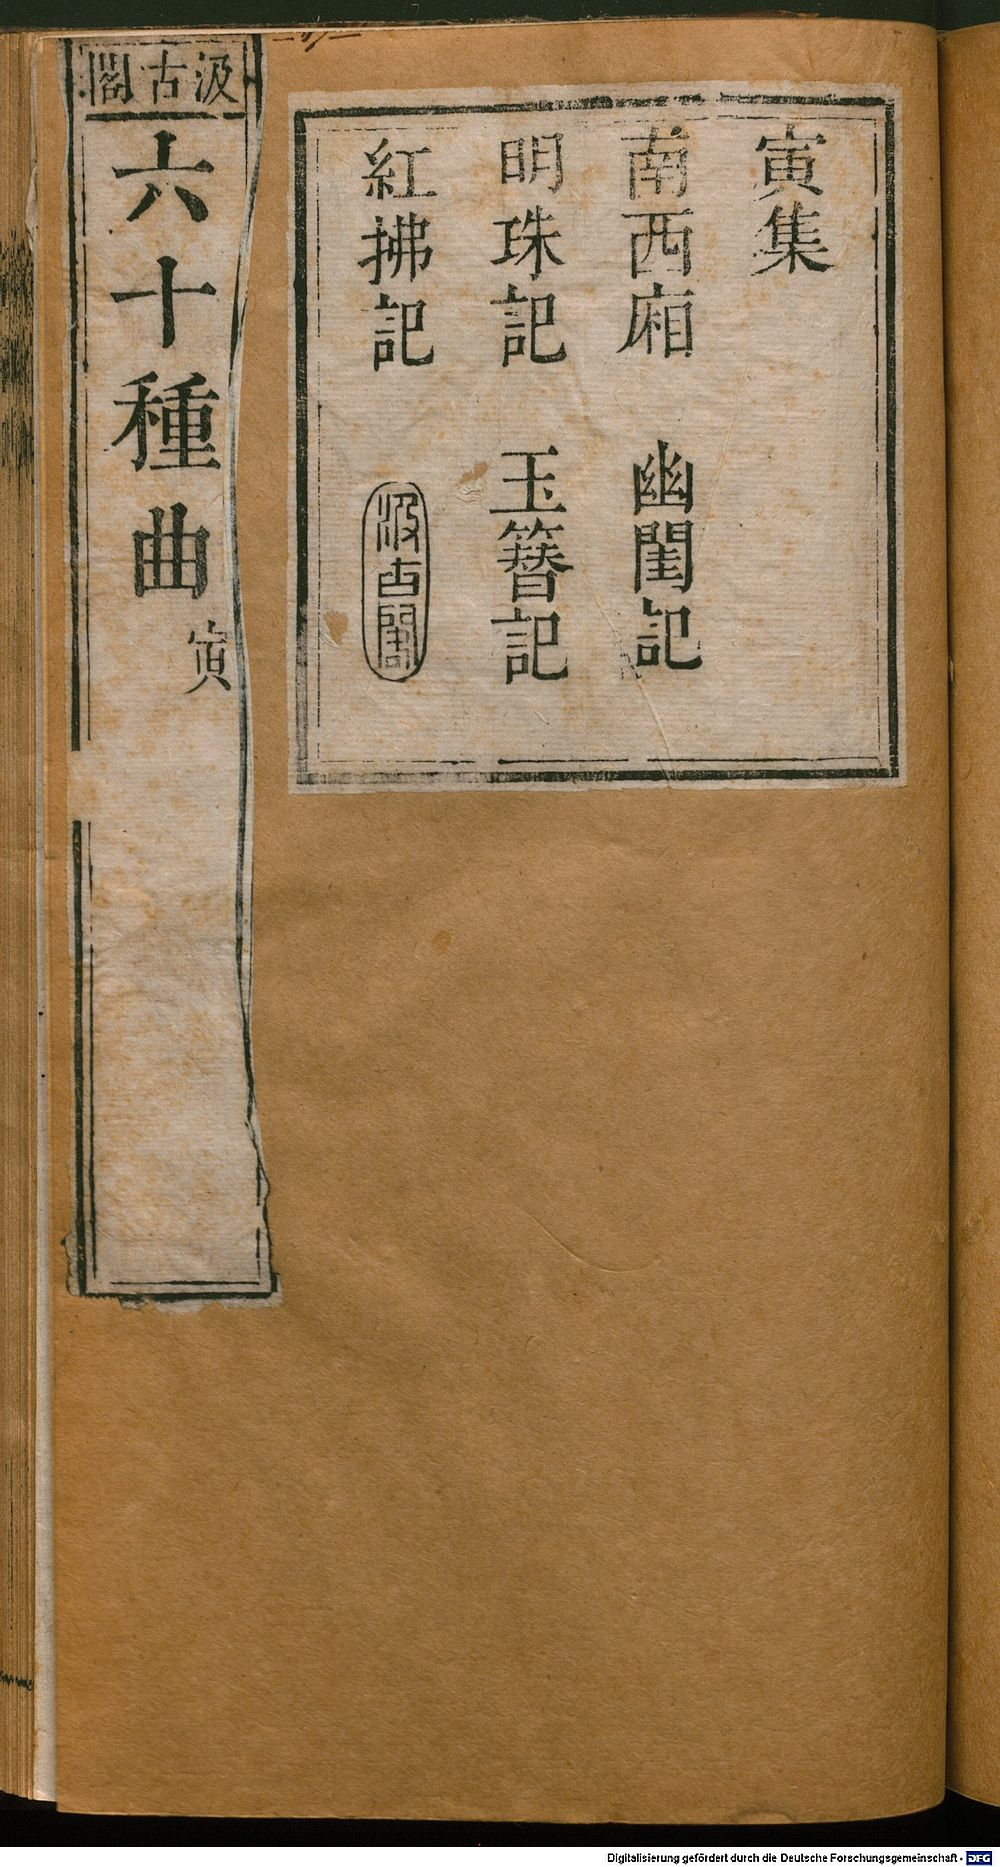 寅集
南西廂 幽閨記
明珠記 玉簪記
紅拂記 汲古閣
汲古閣
六十種曲 寅
Digitalisierung gefördert durch die Deutsche Forschungsgemeinschaft - DFG